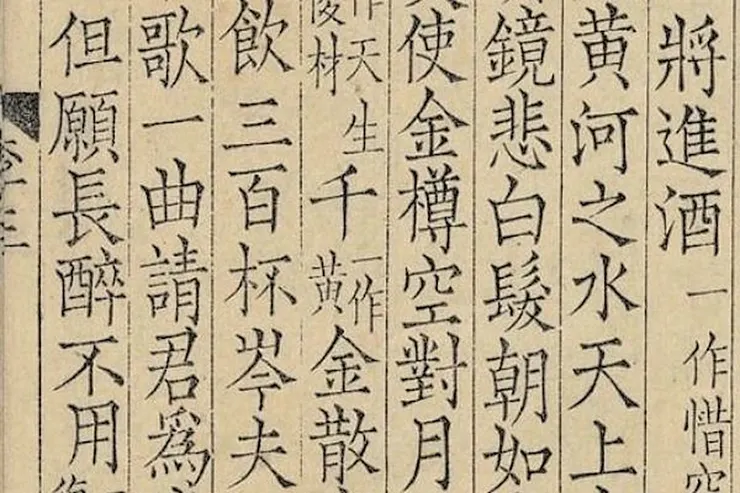 將進酒一作惜空
黄河之水天上
鏡悲白髮朝如
使金樽空對月
作天生俊材千一作黄金散
飲三百杯岑夫
歌一曲請君爲
但願長醉不用